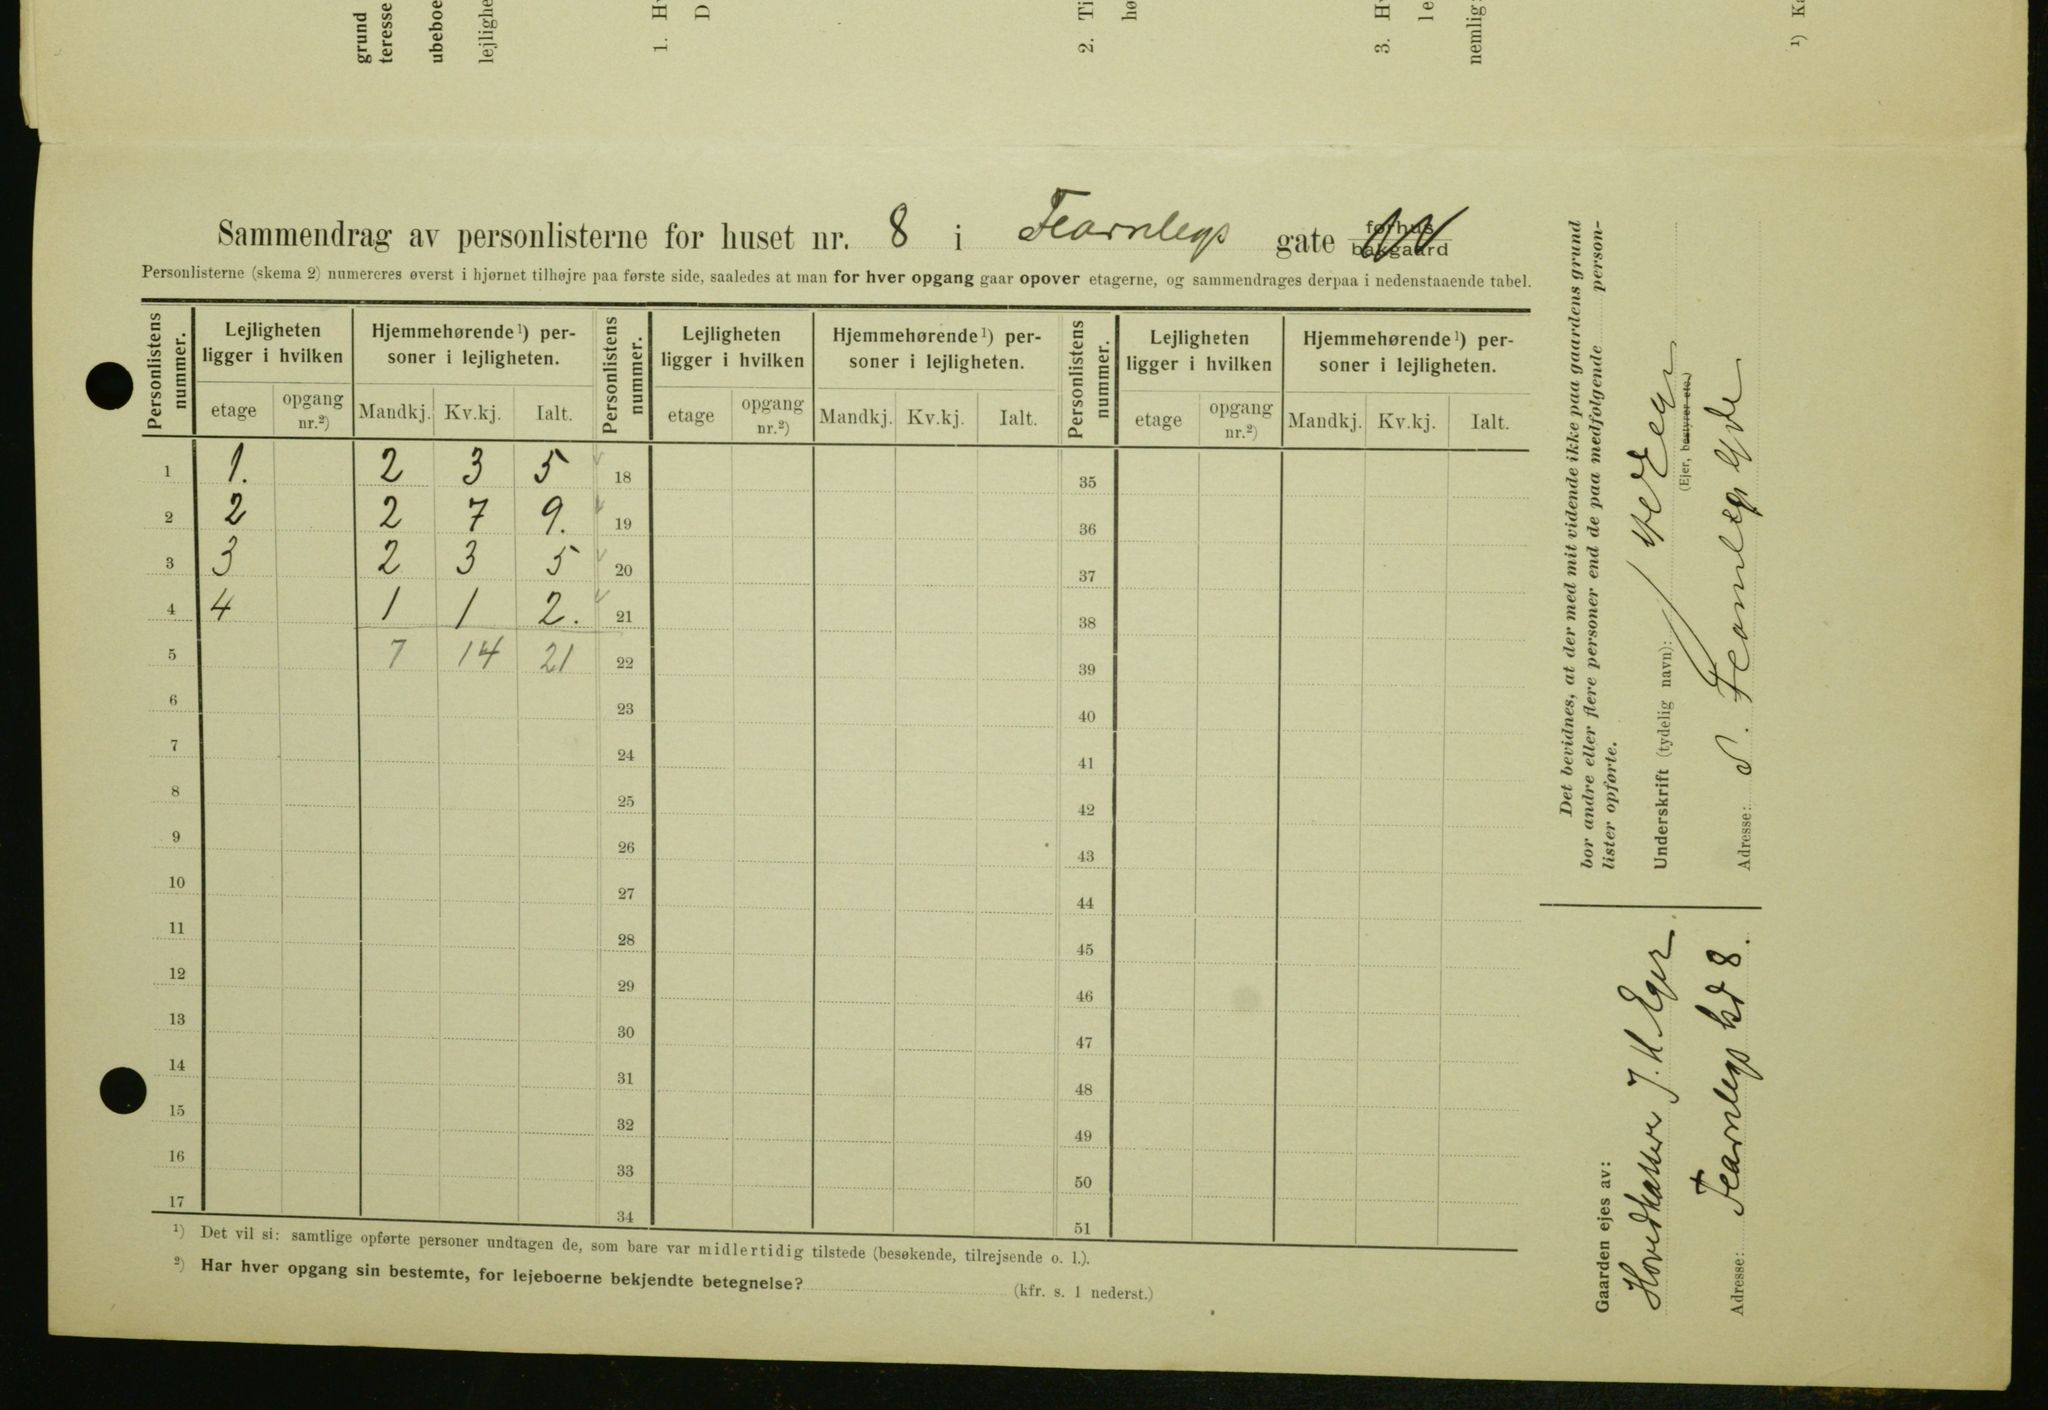 grund
teresse
ubeboe
lejlighe
1. H
D
2. Ti
hø
3. H
le
nemlig:
¹) Ka
Sammendrag av personlisterne for huset nr. 8 i Fearnleys gate forhus bakgaard
Personlisterne (skema 2) numereres øverst i hjørnet tilhøjre paa første side, saaledes at man for hver opgang gaar opover etagerne, og sammendrages derpaa i nedenstaaende tabel.
Personlistens nummer. Lejligheten ligger i hvilken Hjemmehørende¹) personer i lejligheten. Personlistens nummer. Lejligheten ligger i hvilken Hjemmehørende¹) personer i lejligheten. Personlistens nummer. Lejligheten ligger i hvilken Hjemmehørende¹) personer i lejligheten.
etage opgang nr.²) Mandkj. Kv.kj. Ialt. etage opgang nr.²) Mandkj. Kv.kj. Ialt. etage opgang nr.²) Mandkj. Kv.kj. Ialt.
1 1. 2 3 5 18 35
2 2 2 7 9. 19 36
3 3 2 3 5 20 37
4 4 1 1 2. 21 38
5 7 14 21 22 39
6 23 40
7 24 41
8 25 42
9 26 43
10 27 44
11 28 45
12 29 46
13 30 47
14 31 48
15 32 49
16 33 50
17 34 51
¹) Det vil si: samtlige opførte personer undtagen de, som bare var midlertidig tilstede (besøkende, tilrejsende o. l.).
²) Har hver opgang sin bestemte, for lejeboerne bekjendte betegnelse? (kfr. s. 1 nederst.)
Det bevidnes, at der med mit vidende ikke paa gaardens grund
bor andre eller flere personer end de paa medfølgende person-
lister opførte.
Underskrift (tydelig navn):
(Ejer, bestyrer etc.)
Adresse:
Gaarden ejes av:
J. H. Eger
Adresse: Fearnleys 8.